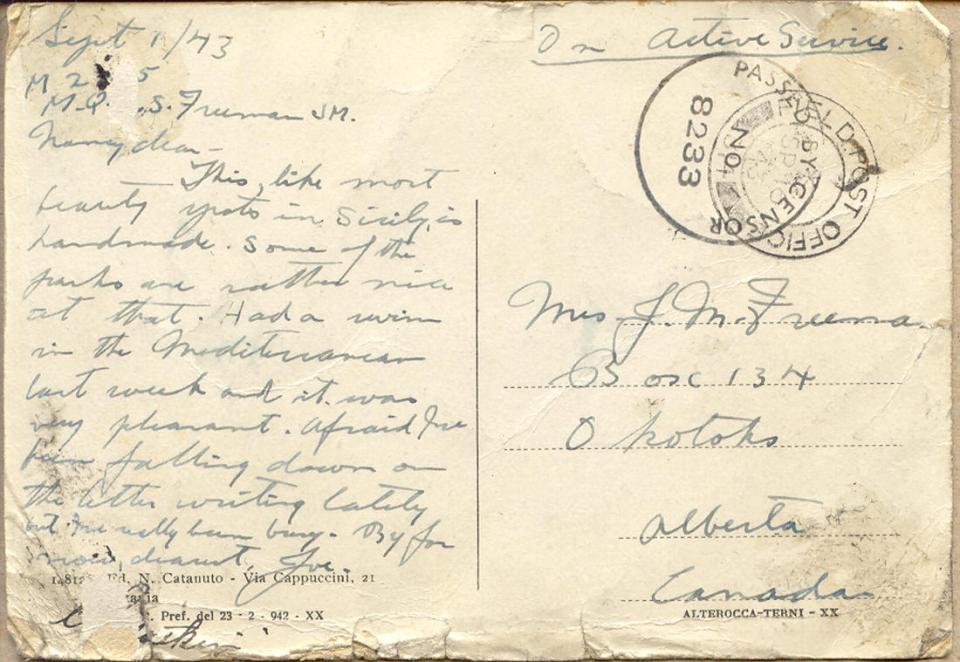 Sept 1/43
M 2 5
M.Q. .S. Freeman JM.
Nancy dear -
This, like most
beauty spots in Sicily, is
handmade. Some of the
parks are rather nice
at that. Had a swim
in the Mediterranean
last week and it was
very pleasant. Afraid I've
been falling down on
the letter writing lately
but I've really been busy. By for
now, dearest, Joe.
Ed. N. Catanuto - Via Cappuccini, 21
Pref. del 23 - 2 - 942 - XX
On Active Service.
PASSED BY CENSOR
NO.
8233
FIELD POST OFFICE
Mrs J. M. Freeman
Box 134
Okotoks
Alberta
Canada
ALTEROCCA-TERNI - XX